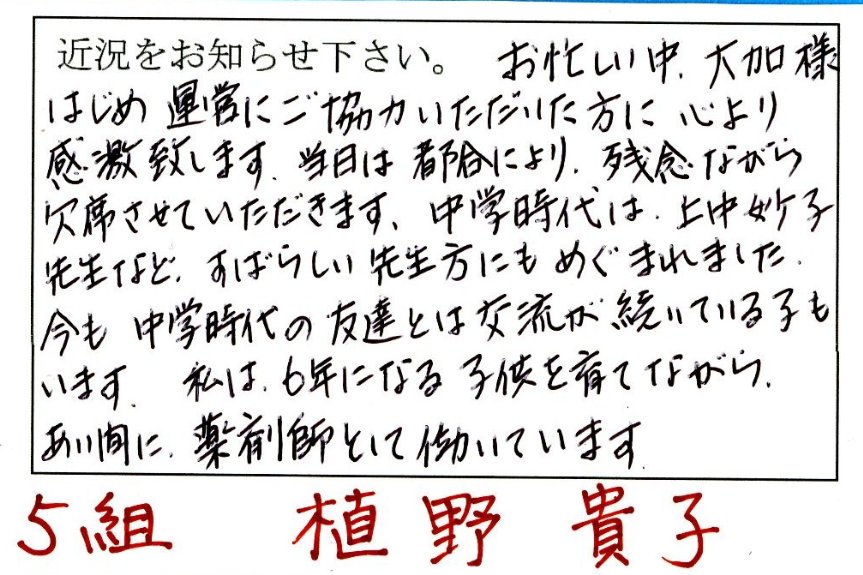 近況をお知らせ下さい。 お忙しい中、大加様
はじめ 運営にご協力いただいた方に 心より
感激致します。当日は 都合により、残念ながら
欠席させていただきます、中学時代は、上中妙子
先生など、すばらしい先生方にもめぐまれました。
今も 中学時代の友達とは交流が続いている子も
います。 私は、6年になる子供を育てながら、
あい間に、薬剤師として働いています
5組 植野 貴子